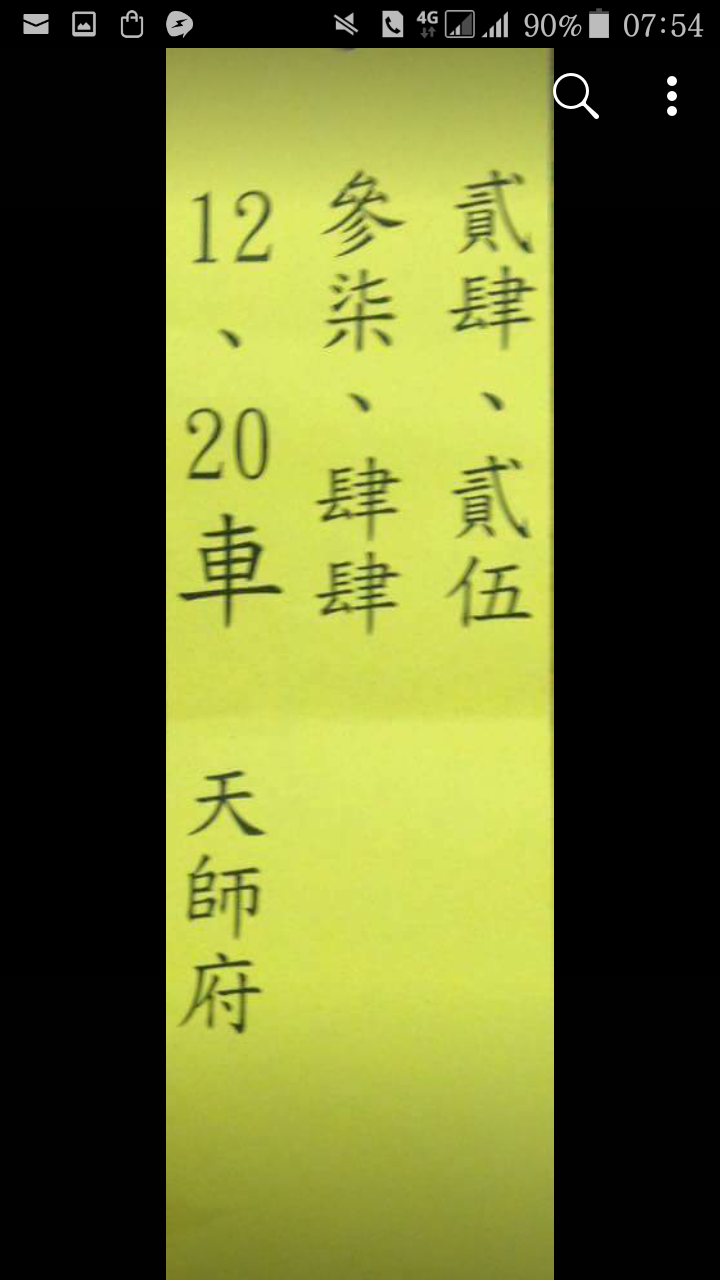 4G 90% 07:54
貳肆、貳伍
參柒、肆肆
12、20車 天師府